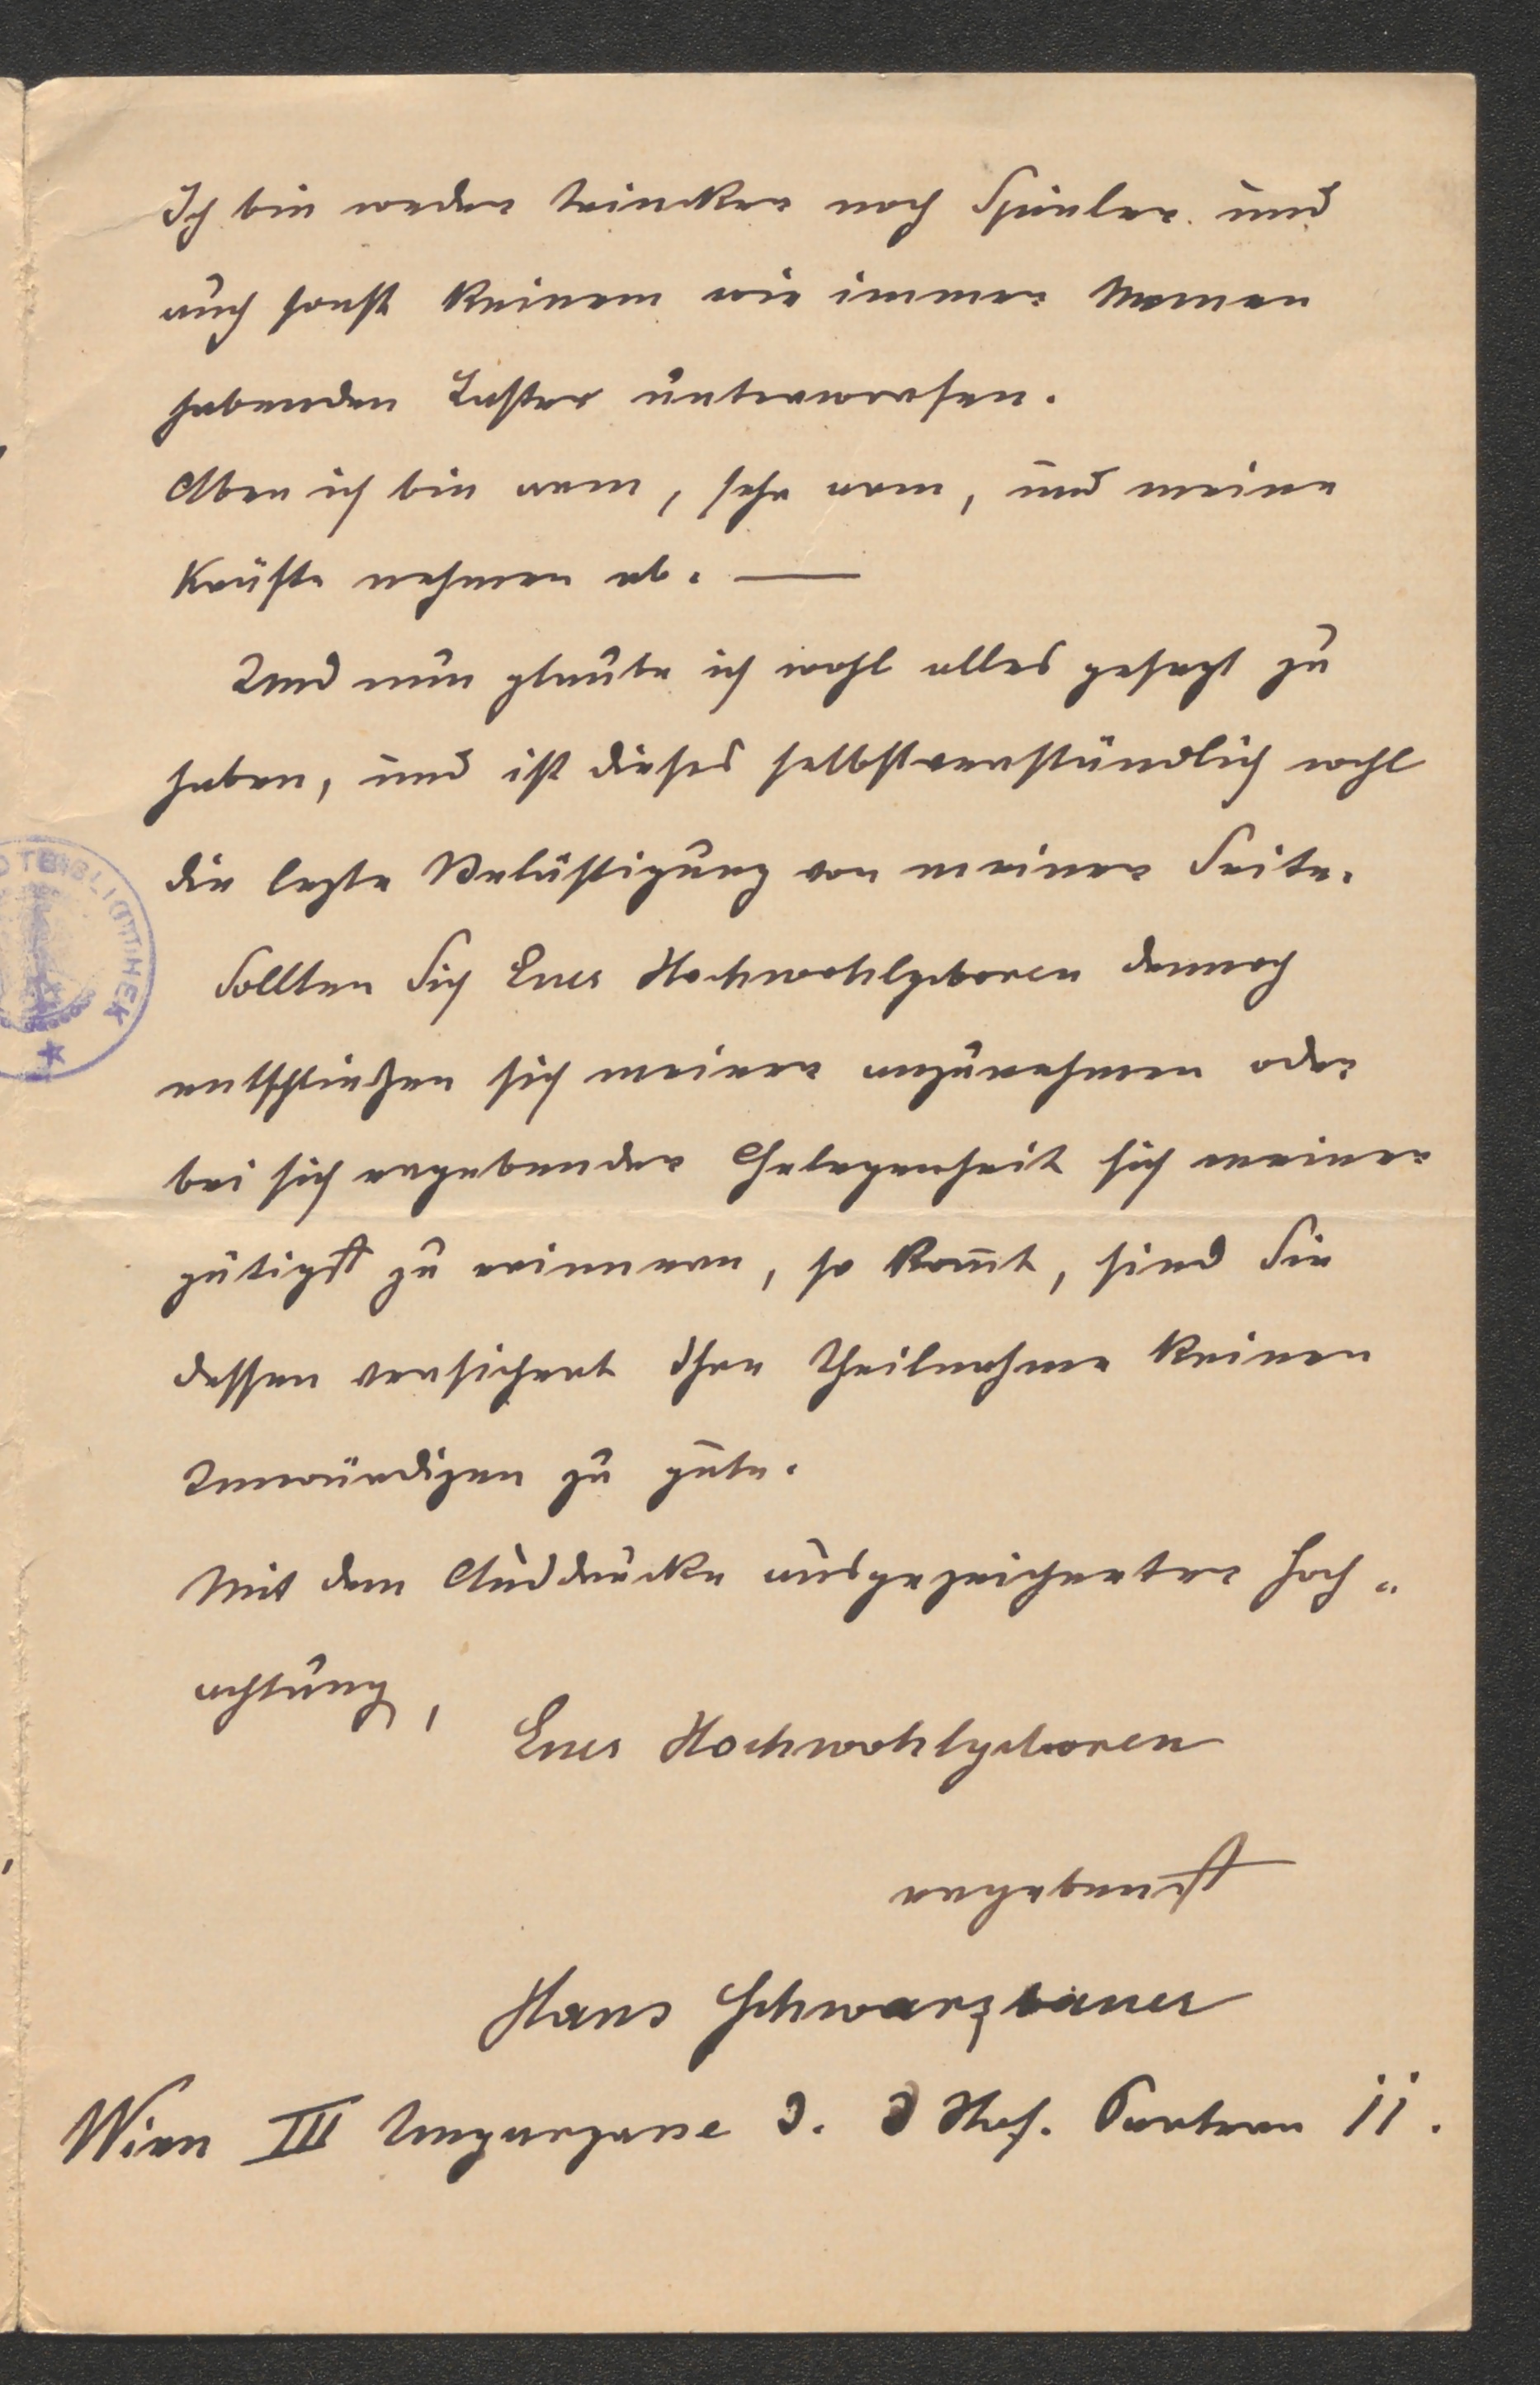 Ich bin weder Trincker noch Spieler und
auch sonst keinem wie immer Namen
habenden Laster unterworfen.
Aber ich bin arm, sehr arm, und meine
Kräfte nehmen ab. —
Und nun glaube ich wohl alles gesagt zu
haben, und ist dieses selbstverständlich wohl
die lezte Belästigung von meiner Seite.
Sollten Sich Euer Hochwohlgeboren dennoch
entschließen sich meiner anzunehmen oder
bei sich ergebender Gelegenheit sich meiner
gütigst zu erinnern, so kom̄t, sind Sie
dessen versichert Ihre Theilnahme keinen
Unwürdigen zu gute.
Mit dem Ausdrucke ausgezeichneter Hoch-
achtung,
Euer Hochwohlgeboren
ergebenst
Hans Schwarzbauer
Wien III Ungargasse 3. 3 Hof. Parterre 11.
BIBLIOTHEK